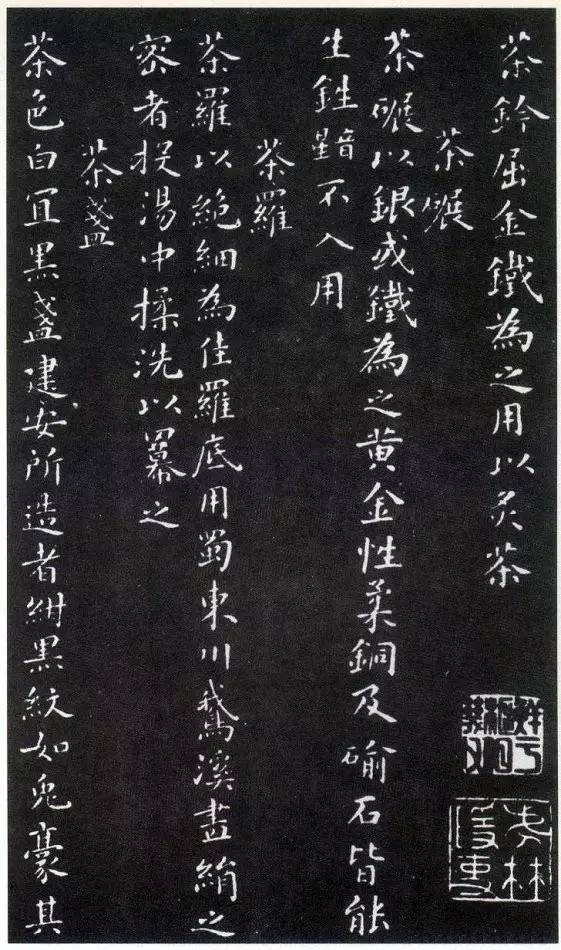 茶鈐屈金鐵為之用以炙茶
茶碾
茶碾以銀或鐵為之黃金性柔銅及碖石皆能
生鉎㬈不入用
茶羅
茶羅以絕細為佳羅底用蜀東川鵝溪畫絹之
密者投湯中揉洗以羃之
茶盞
茶色白冝黑盞建安所造者紺黑紋如兔豪其